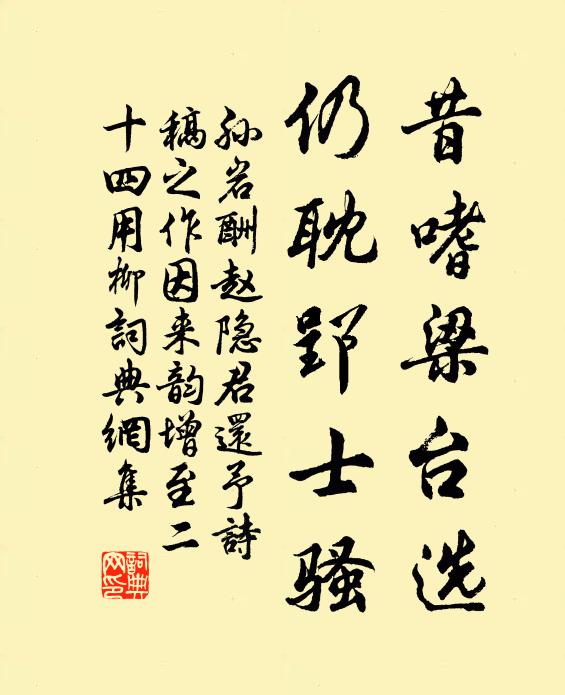 昔嗜梁台选
仍耽郢士骚
孙岩酬赵隐君還予詩
稿之作因来韵增至二
十四用柳詞典網集
詞典
网印